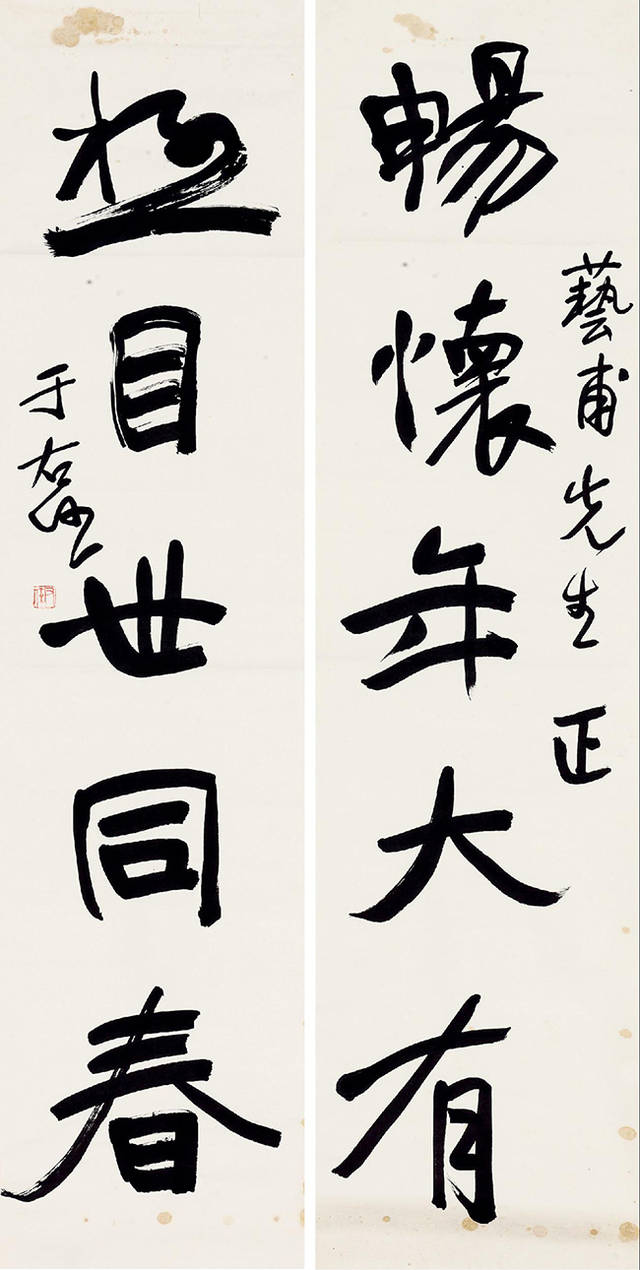 藝甫先生正
暢懷年大有
極目世同春
于右任